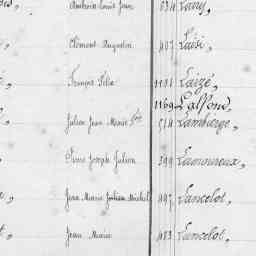 Ambroise Louis Jean 634 Lavy,
Clément Augustin 407 Laisi,
François Félix 1191 Laizé,
1169 Lalfond,
Julien Jean Marie 514 Lambarge,
Pierre Joseph Julien 399 Lamoureux,
Jean Marie Julien Michel 497 Lancelot,
Jean Marie 483 Lancelot,